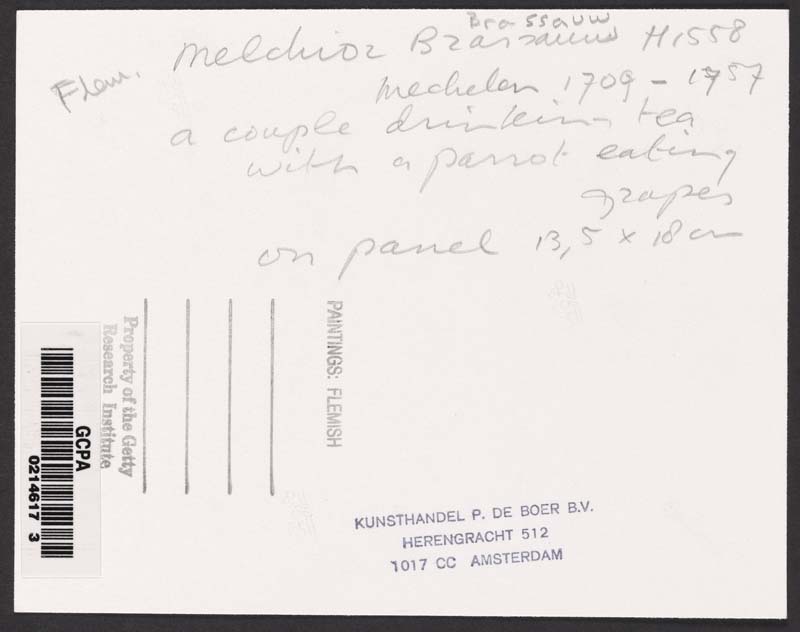 Brassauw
Melchior Brassauw H1558
Flem.
Mechelen 1709 - 1757
a couple drinking tea
with a parrot eating
grapes
on panel 13,5 x 18 cm
PAINTINGS: FLEMISH
Property of the Getty
Research Institute
GCPA
0214617 3
KUNSTHANDEL P. DE BOER B.V.
HERENGRACHT 512
1017 CC AMSTERDAM